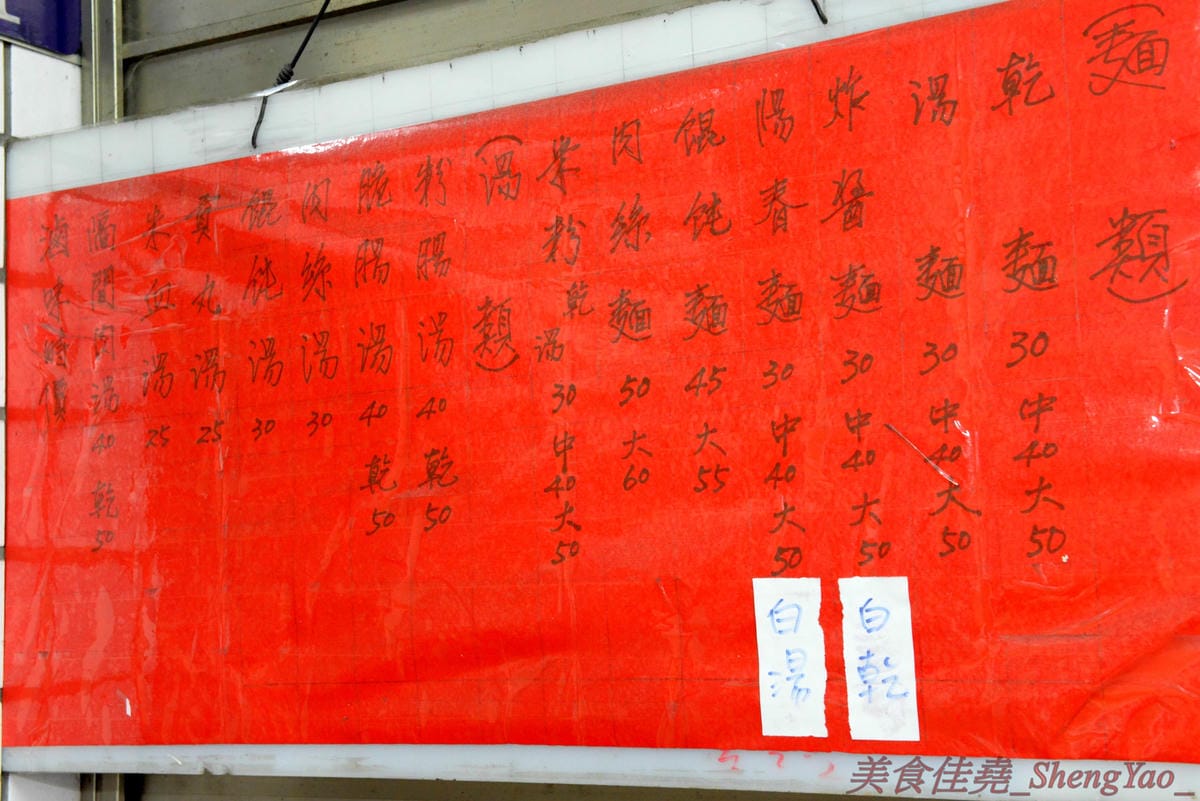 （麵類）
乾麵 30 中40 大50
湯麵 30 中40 大50
炸醬麵 30 中40 大50
湯春麵 30 中40 大50
餛飩麵 45 大55
肉絲麵 50 大60
米粉乾湯 30 中40 大50
（湯類）
粉腸湯 40 乾50
脆腸湯 40 乾50
肉絲湯 30
餛飩湯 30
貢丸湯 25
米血湯 25
隔間肉湯 40 乾50
滷味時價
白乾
白湯
美食佳堯_ShengYao_